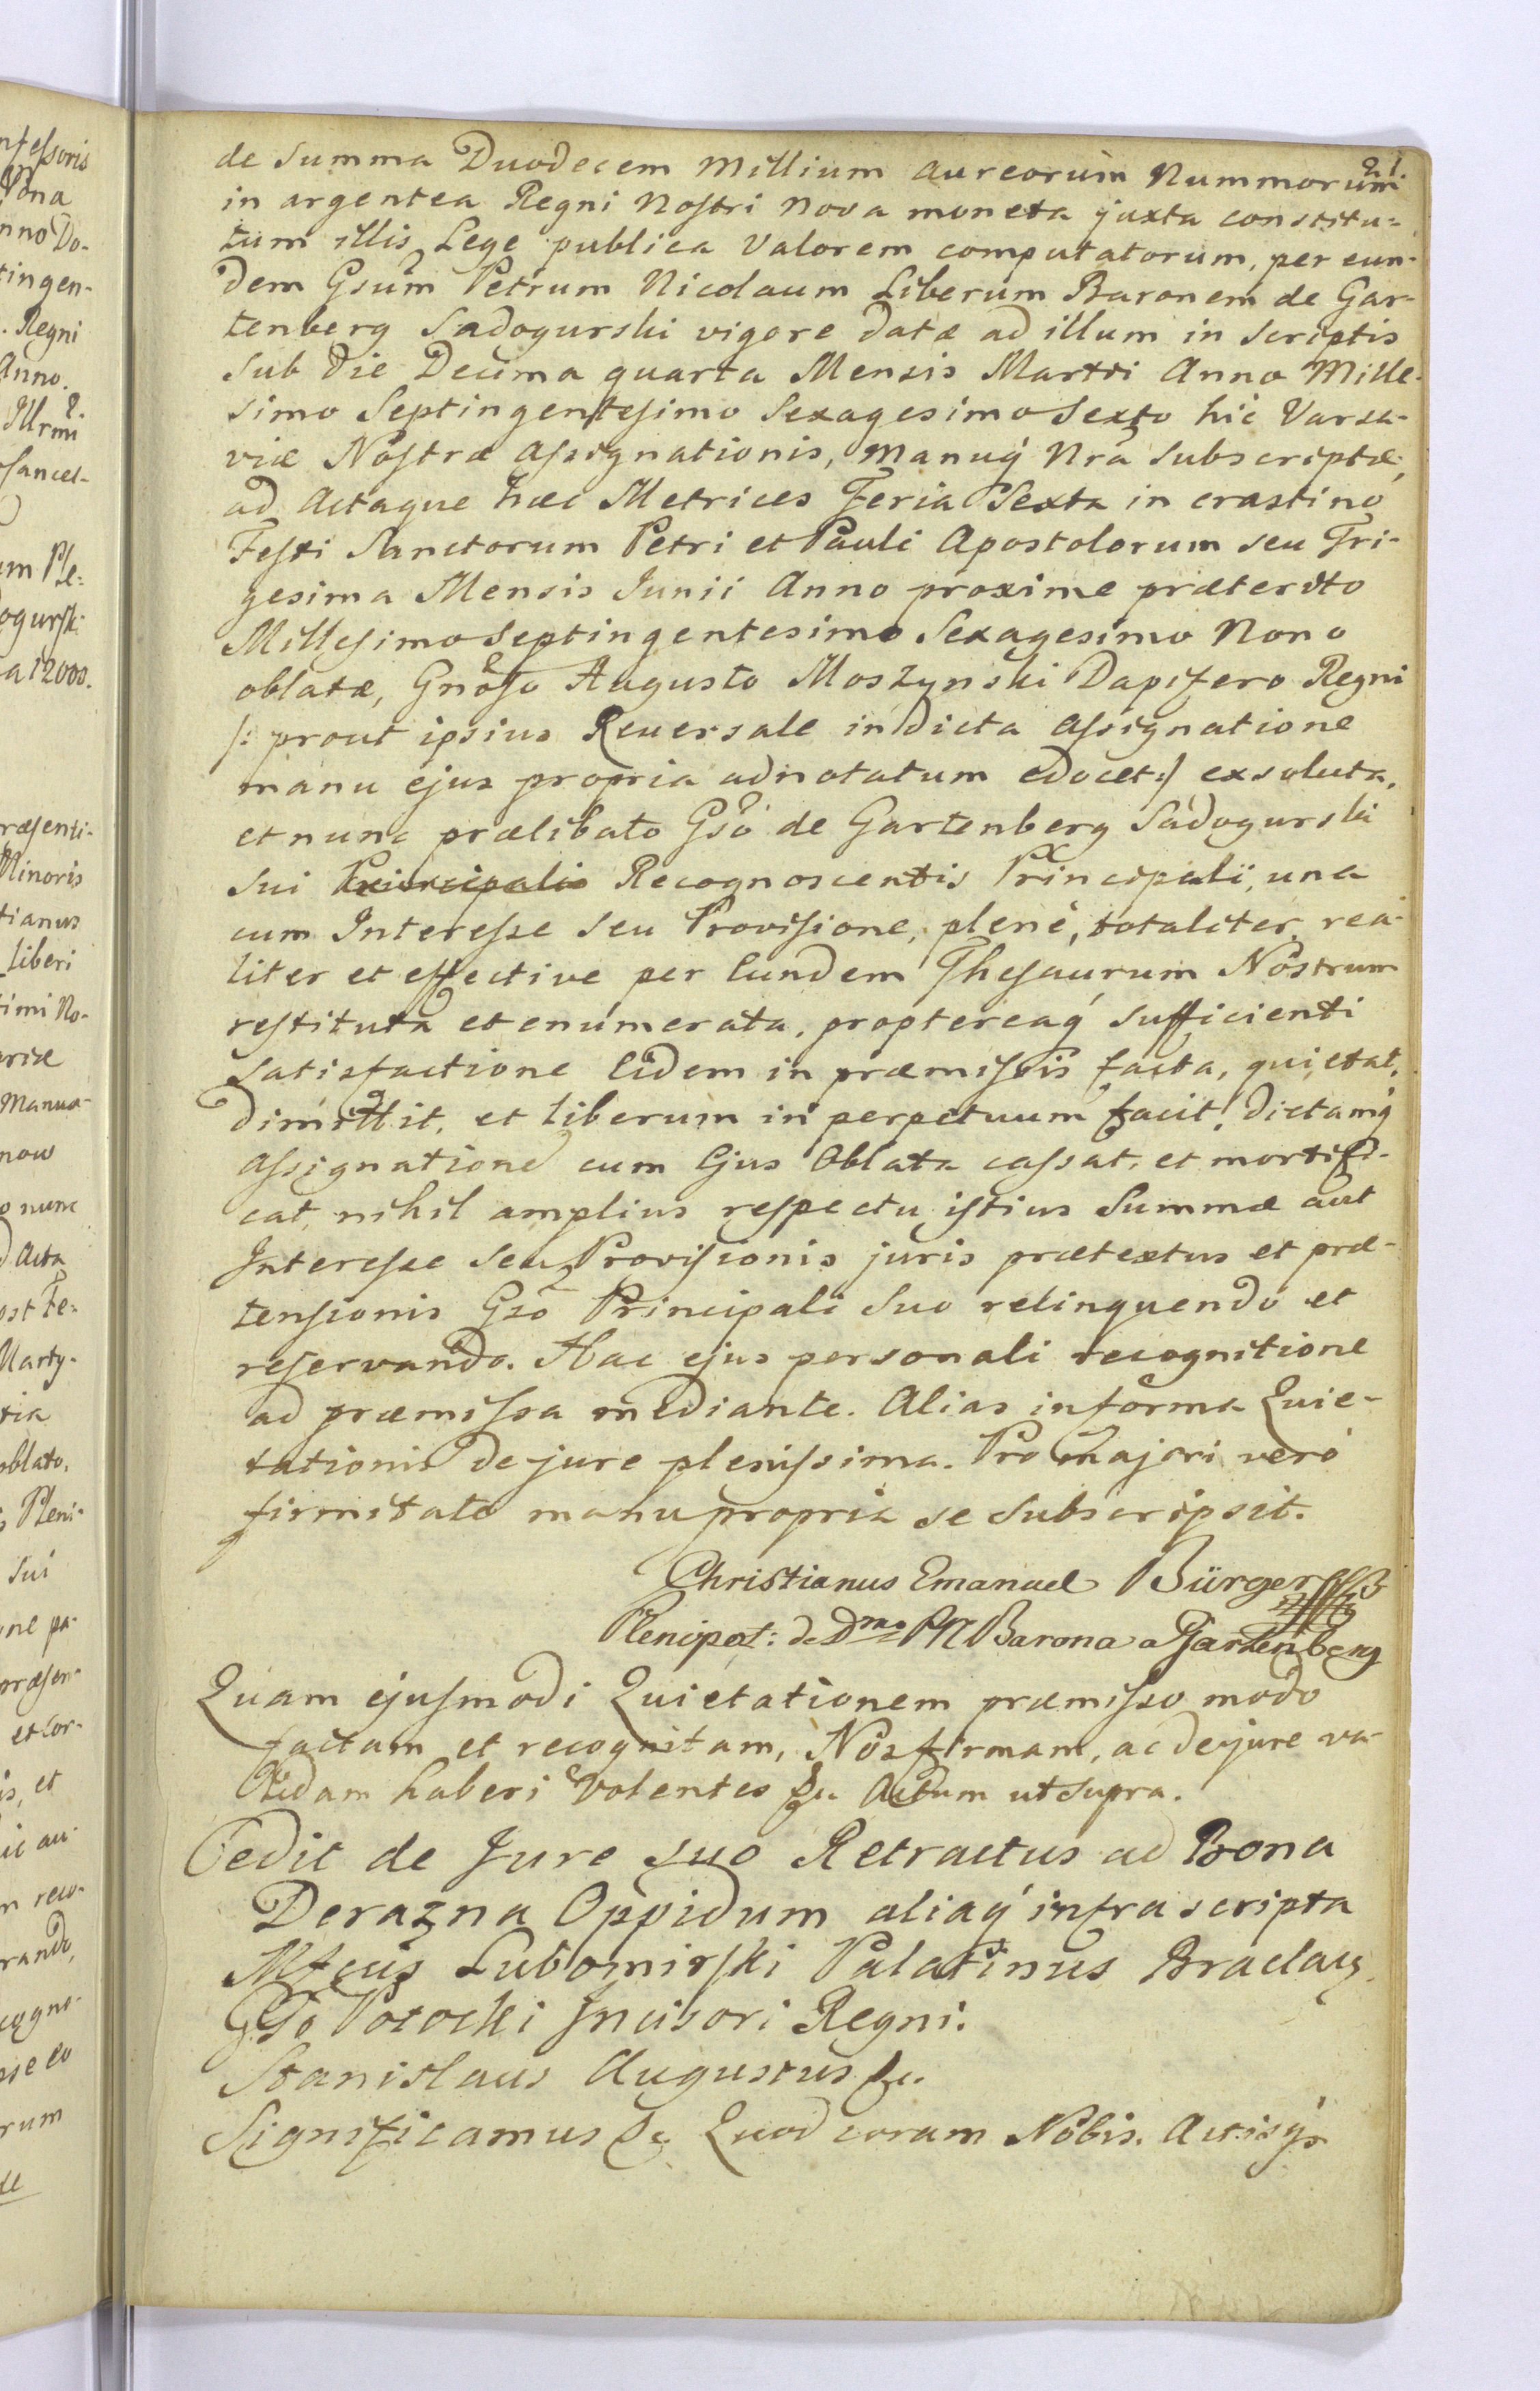 21.
de Summa Duodecem Millium Aureorum Nummorum
in argentea Regni Nostri nova moneta juxta constitu=
tum illis Lege publica Valorem computatorum, per eun-
dem Gsum Petrum Nicolaum Liberum Baronem de Gar-
tenberg Sadogurski vigore datæ ad illum in scriptis
Sub die Decima quarta Mensis Martii Anno Mille-
simo Septingentesimo Sexagesimo Sexto hic Varsa-
viæ Nostræ Assignationis, Manuq́ Nrã Subscriptæ,
ad Actaque hæc Metrices Feria Sexta in crastino
Festi Sanctorum Petri et Pauli Apostolorum seu Tri-
gesima Mensis Junii Anno proxime præterito
Millesimo Septingentesimo Sexagesimo Nono
oblatæ, Gnoso Augusto Moszynski Dapifero Regni
/: prout ipsius Reversale in dicta Assignatione
manu ejus propria adnotatum edocet :/ exsoluta,
et nunc prælibato Gso de Gartenberg Sadogurski
sui Principalis Recognoscentis Principali, una
cum Interesse seu Provisione, plene, totaliter, rea-
liter et effective per Eundem Thesaurum Nostrum
restituta et enumerata, proptereaq́ sufficienti
Satisfactione Eidem in præmissis facta, quietat,
dimittit, et liberum in perpetuum facit, dictamq́
Assignationem cum Ejus Oblata cassat, et mortifi-
cat, nihil amplius respectu istius Summæ aut
Interesse seu Provisionis juris prætextus et præ-
tensionis Gso Principali Suo relinquendo et
reservando. Hac ejus personali recognitione
ad præmissa mediante. Alias in forma Quie-
tationis de jure plenissima. Pro majori vero
firmitate manu propria se Subscripsit.
Christianus Emanuel Bürger
Plenipot: de Dmo PN Barona a Gartenberg
Quam ejusmodi Quietationem præmisso modo
factam et recognitam, Nos firmam, ac de jure va-
lidam haberi Volentes &c. Actum ut supra.
Cedit de Jure suo Retractus ad Bona
Derazna Oppidum aliaq́ infrascripta
Mfcus Lubomirski Palatinus Braclav.
Gso Potocki Incisori Regni.
Stanislaus Augustus &c.
Significamus &c. Quod coram Nobis, Actisq́